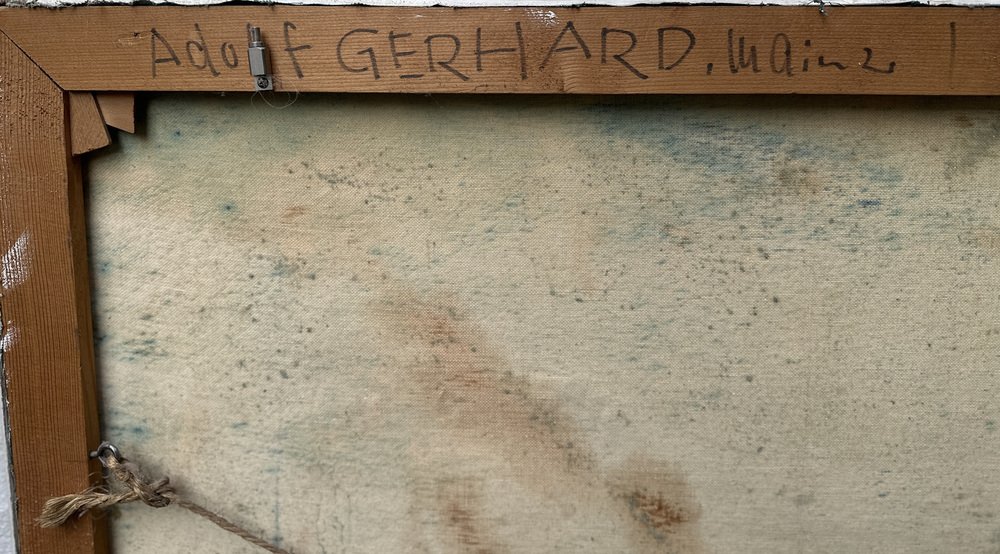 Adolf GERHARD, Mainz